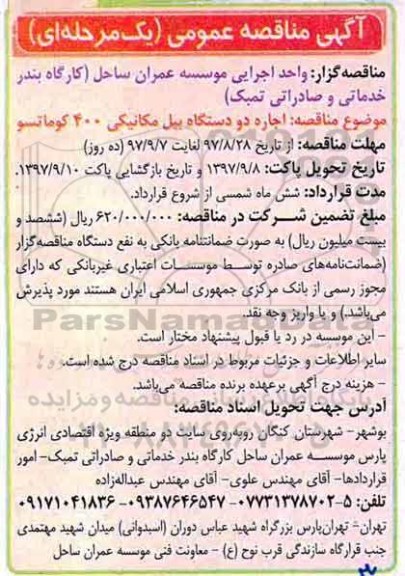 آگهی مناقصه عمومی (یک‌مرحله‌ای)
مناقصه‌گزار: واحد اجرایی موسسه عمران ساحل (کارگاه بندر
خدماتی و صادراتی تمبک)
موضوع مناقصه: اجاره دو دستگاه بیل مکانیکی ۴۰۰ کوماتسو
مهلت مناقصه: از تاریخ ۹۷/۸/۲۸ لغایت ۹۷/۹/۷ (ده روز)
تاریخ تحویل پاکت: ۱۳۹۷/۹/۸ و تاریخ بازگشایی پاکت ۱۳۹۷/۹/۱۰.
مدت قرارداد: شش ماه شمسی از شروع قرارداد.
مبلغ تضمین شرکت در مناقصه: ۶۲۰/۰۰۰/۰۰۰ ریال (ششصد و
بیست میلیون ریال) به صورت ضمانتنامه بانکی به نفع دستگاه مناقصه‌گزار
(ضمانت‌نامه‌های صادره توسط موسسات اعتباری غیربانکی که دارای
مجوز رسمی از بانک مرکزی جمهوری اسلامی ایران هستند مورد پذیرش
می‌باشد.) و یا واریز وجه نقد.
ParsNamadData
- این موسسه در رد یا قبول پیشنهاد مختار است.
سایر اطلاعات و جزئیات مربوط در اسناد مناقصه درج شده است.
- هزینه درج آگهی برعهده برنده مناقصه می‌باشد.
آدرس جهت تحویل اسناد مناقصه:
بوشهر- شهرستان کنگان روبه‌روی سایت دو منطقه ویژه اقتصادی انرژی
پارس موسسه عمران ساحل کارگاه بندر خدماتی و صادراتی تمبک- امور
قراردادها- آقای مهندس علوی- آقای مهندس عبداله‌زاده
تلفن: ۵-۰۷۷۳۱۳۷۸۷۰۲ -۰۹۳۸۷۶۴۶۵۴۷ -۰۹۱۷۱۰۴۱۸۳۶
تهران- تهران‌پارس بزرگراه شهید عباس دوران (استدوانی) میدان شهید مهتمدی
جنب قرارگاه سازندگی قرب نوح (ع) - معاونت فنی موسسه عمران ساحل